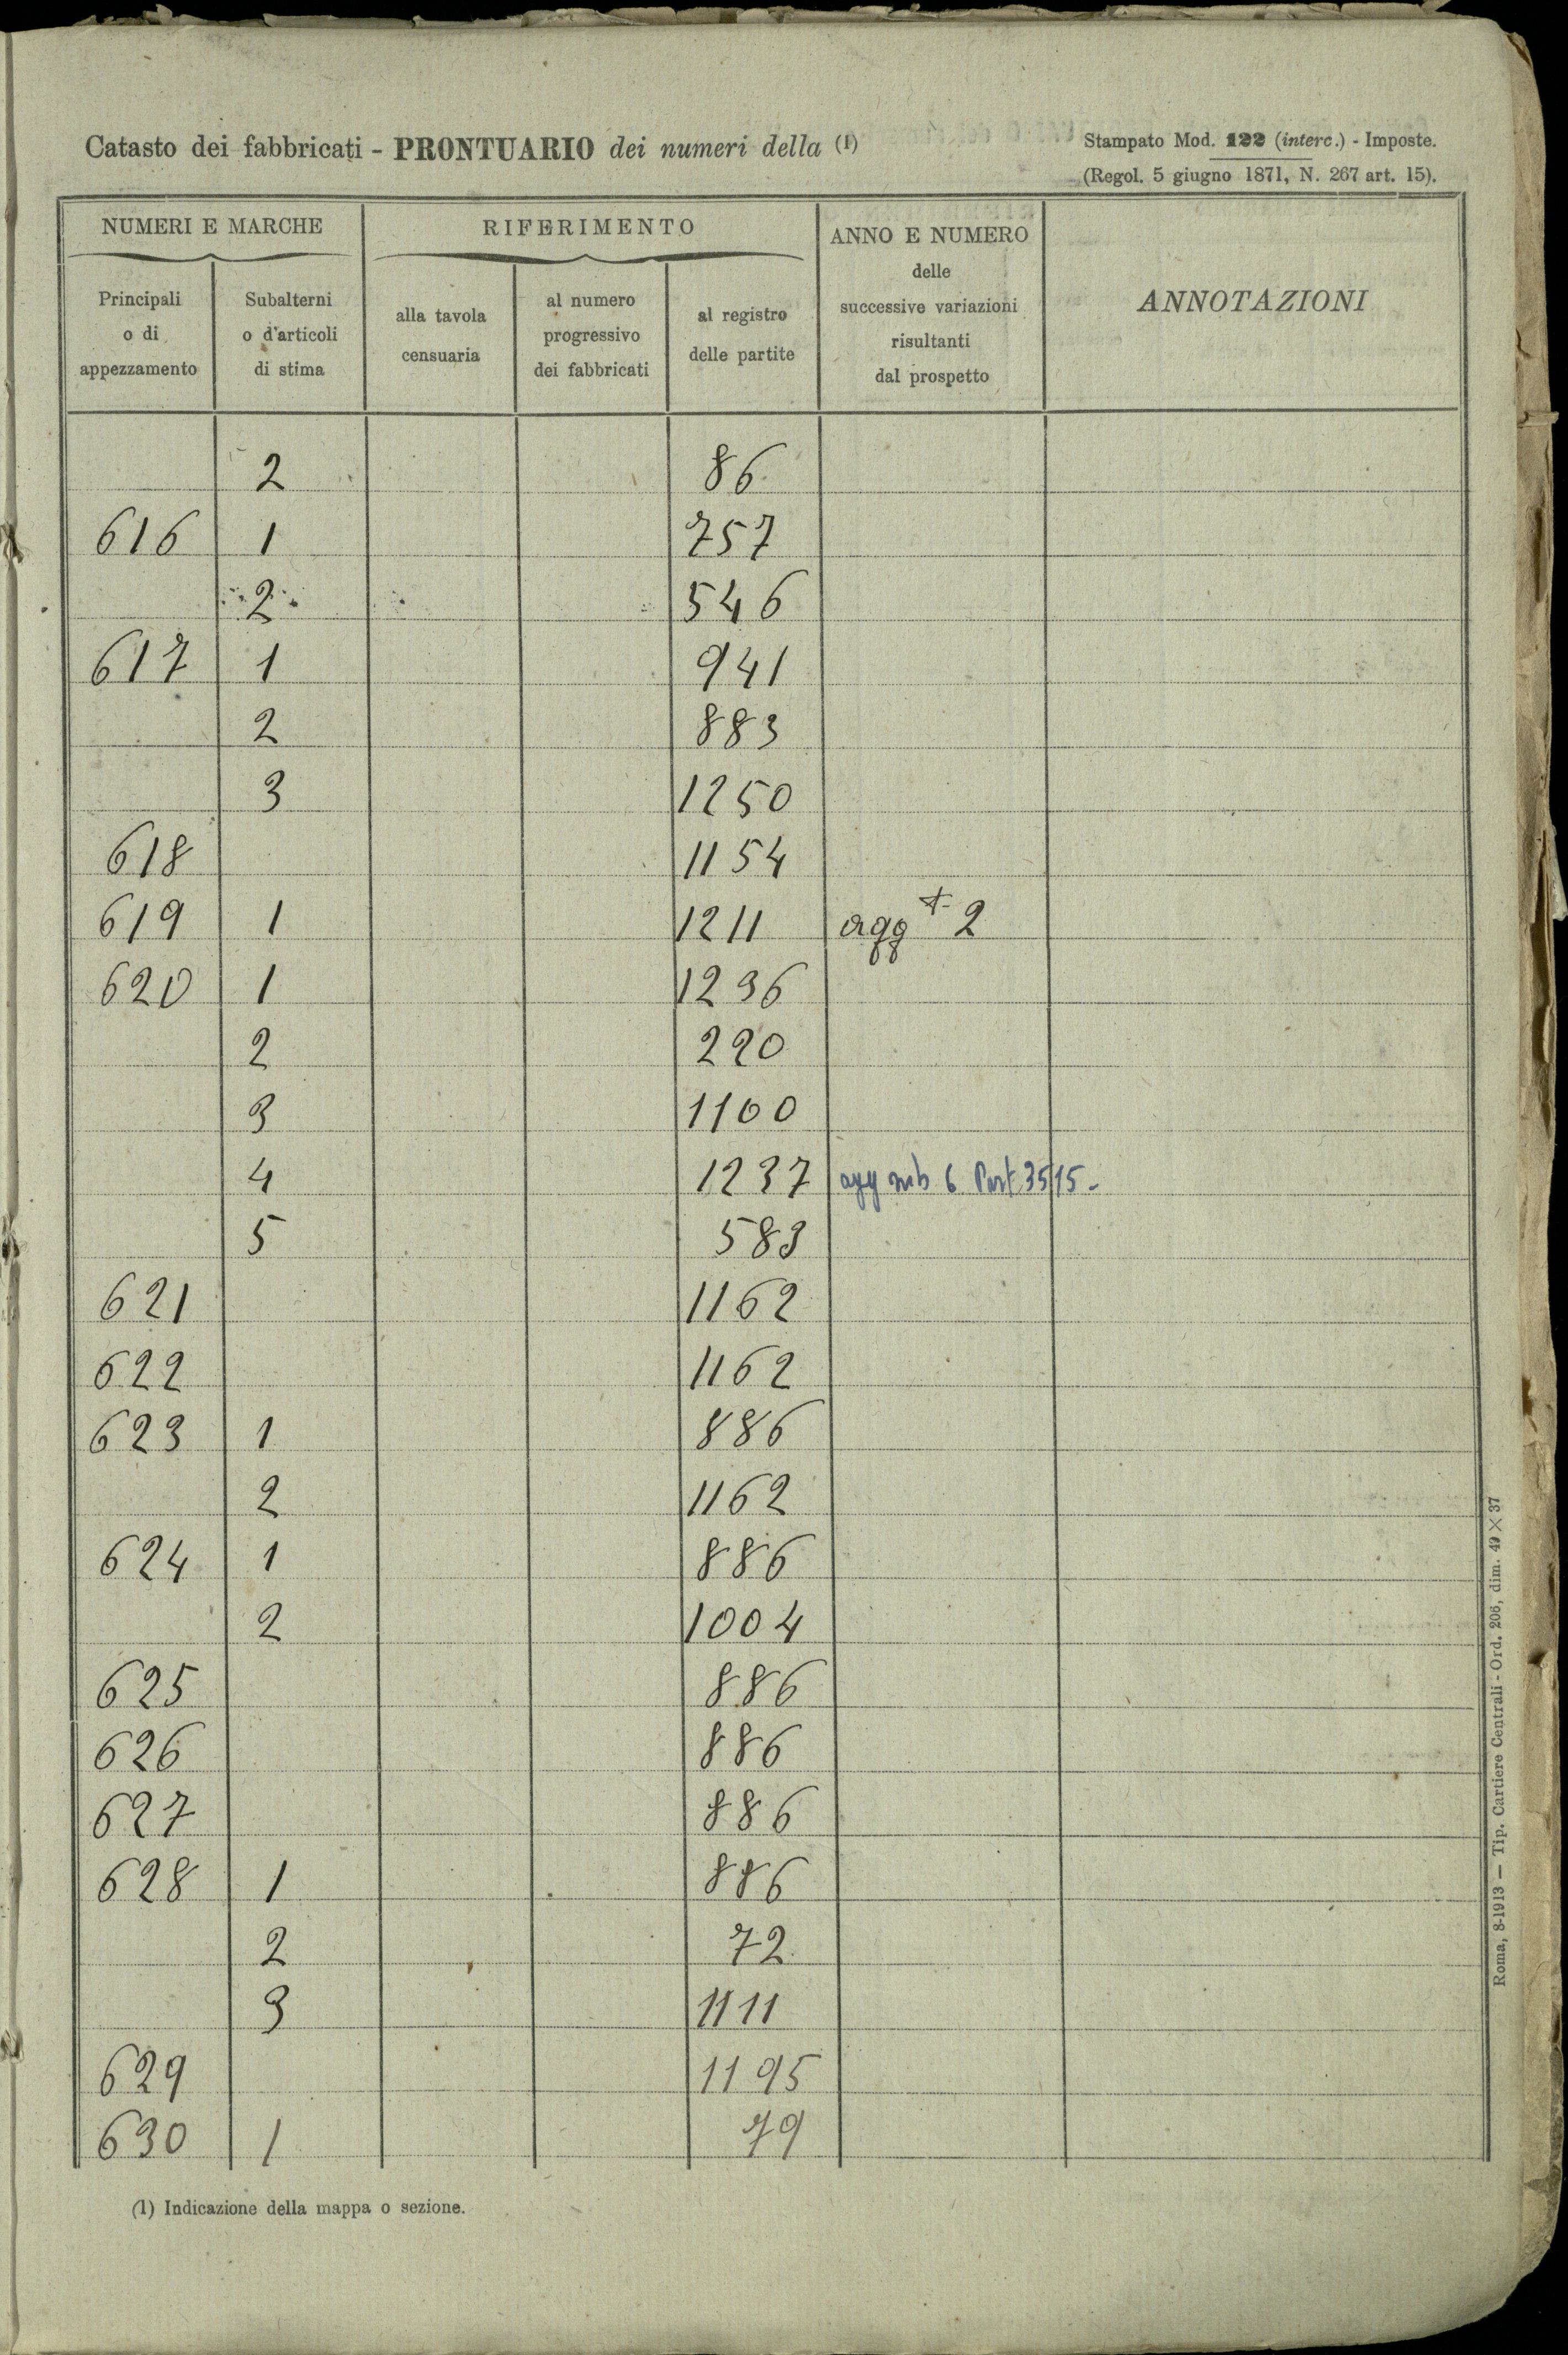 Catasto dei fabbricati - PRONTUARIO dei numeri della (1)
Stampato Mod. 122 (interc.) - Imposte.
(Regol. 5 giugno 1871, N. 267 art. 15).
NUMERI E MARCHE
Principali o di appezzamento
Subalterni o d'articoli di stima
RIFERIMENTO
alla tavola censuaria
al numero progressivo dei fabbricati
al registro delle partite
ANNO E NUMERO delle successive variazioni risultanti dal prospetto
ANNOTAZIONI
2 86
616 1 757
2 546
617 1 941
2 883
3 1250
618 1154
619 1 1211 agg 2
620 1 1236
2 220
3 1100
4 1237 agg sub 6 Part 3515-
5 583
621 1162
622 1162
623 1 886
2 1162
624 1 886
2 1004
625 886
626 886
627 886
628 1 886
2 72
3 1111
629 1195
630 1 79
(1) Indicazione della mappa o sezione.
Roma, 8-1913 — Tip. Cartiere Centrali - Ord. 206, dim. 49 × 37